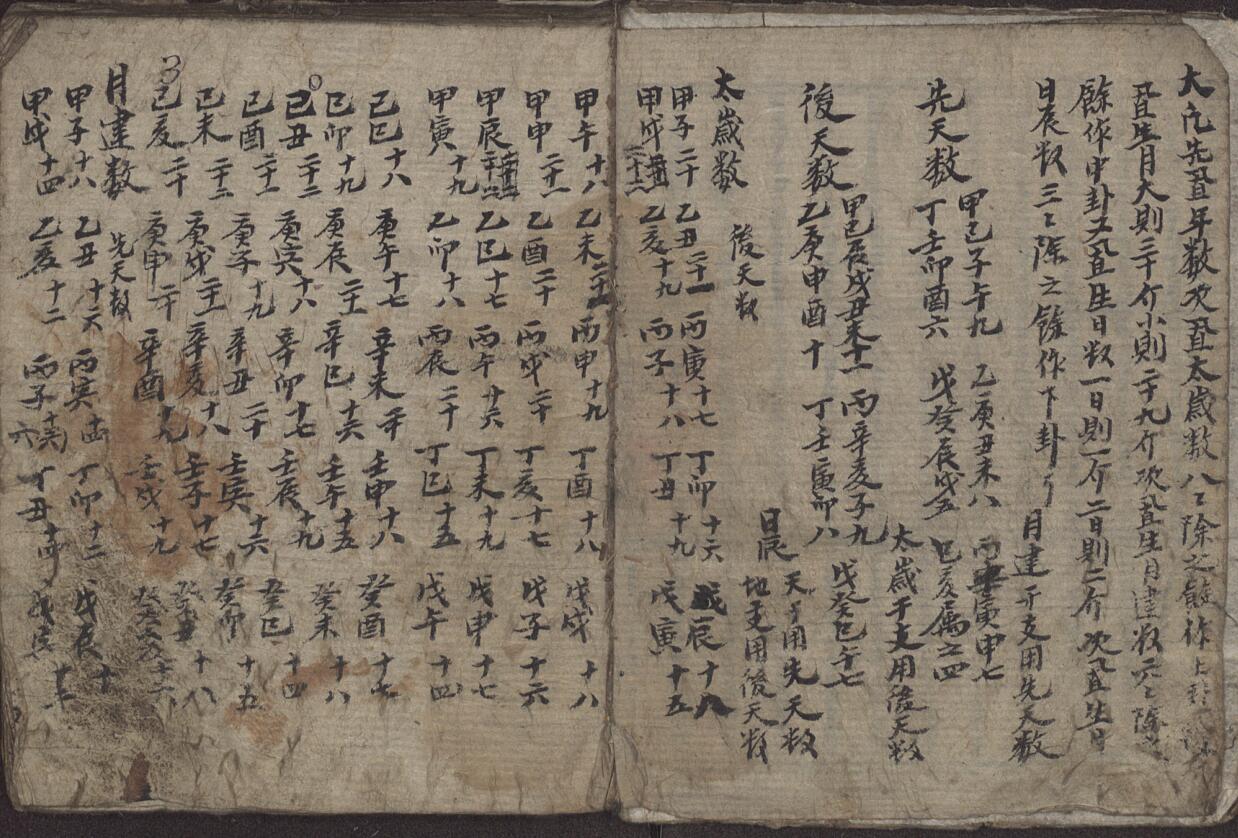 大凡先置年数次置太歲数八〻除之餘作上卦
置生月大則三十介小則二十九介次置生月建数六〻除之
餘作中卦又置生日数一日則一介二日則二介次置生日
日辰数三〻除之餘作下卦
月建干支用先天数
先天数
甲己子午九 乙庚丑未八 丙辛寅申七
丁壬卯酉六 戊癸辰戌五 巳亥属之四
太歲干支用後天数
後天数
甲己辰戌丑未十一 丙辛亥子九 戊癸巳午七
乙庚申酉十 丁壬寅卯八
日辰 天干用先天数
地支用後天数
太歲数 後天数
甲子二十 乙丑二十一 丙寅十七 丁卯十六 戊辰十八
甲戌 乙亥十九 丙子十八 丁丑十九 戊寅十五
甲午十八 乙未二十一 丙申十九 丁酉十八 戊戌十八
甲申二十一 乙酉二十 丙戌二十 丁亥十七 戊子十六
甲辰 乙巳十七 丙午十六 丁未十九 戊申十七
甲寅十九 乙卯十八 丙辰二十 丁巳十五 戊午十四
己巳十八 庚午十七 辛未二十 壬申十八 癸酉十七
己卯十九 庚辰二十一 辛巳十六 壬午十五 癸未十八
己丑二十二 庚寅十八 辛卯十七 壬辰十九 癸巳十四
己酉二十一 庚子十九 辛丑二十 壬寅十六 癸卯十五
己未二十二 庚戌二十一 辛亥十八 壬子十七 癸丑十八
己亥二十 庚申二十 辛酉十九 壬戌十九 癸亥十六
月建数 先天数
甲子十八 乙丑十六 丙寅十四 丁卯十二 戊辰十
甲戌十四 乙亥十二 丙子十六 丁丑十四 戊寅十二